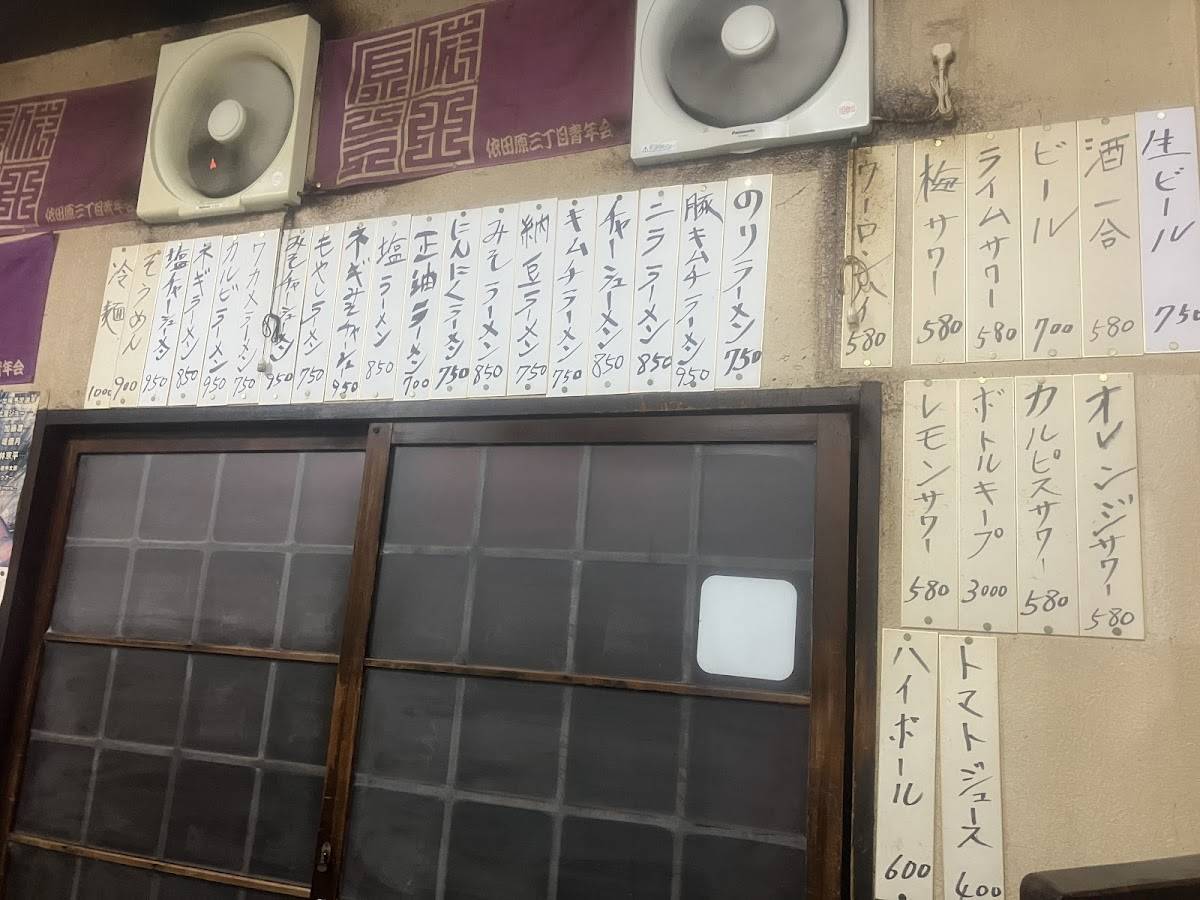 依田原三丁目青年会
依田原三丁目青年会
年会
Panasonic
のりラーメン 750
豚キムチラーメン 950
ニララーメン 850
チャーシューメン 850
キムチラーメン 750
納豆ラーメン 750
みそラーメン 850
にんにくラーメン 750
正油ラーメン 700
塩ラーメン 850
ネギみそチャーシュー 950
もやしラーメン 750
みそチャーシューメン 950
ワカメラーメン 750
カルビラーメン 950
ネギラーメン 850
塩チャーシューメン 950
そうめん 900
冷麺 1000
生ビール 750
酒一合 580
ビール 700
ライムサワー 580
梅サワー 580
ウーロンハイ 580
オレンジサワー 580
カルピスサワー 580
ボトルキープ 3000
レモンサワー 580
トマトジュース 400
ハイボール 600